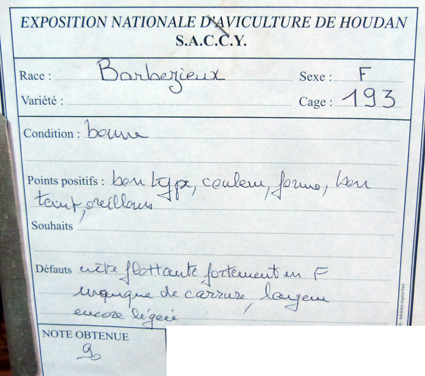 EXPOSITION NATIONALE D'AVICULTURE DE HOUDAN
S.A.C.C.Y.
Race : Barbezieux Sexe : F
Variété : Cage : 193
Condition : bonne
Points positifs : bon type, couleur, forme, bon
teint, oreillons
Souhaits
Défauts crête flottante fortement en F
manque de carrure, largeur
encore légère
NOTE OBTENUE
90